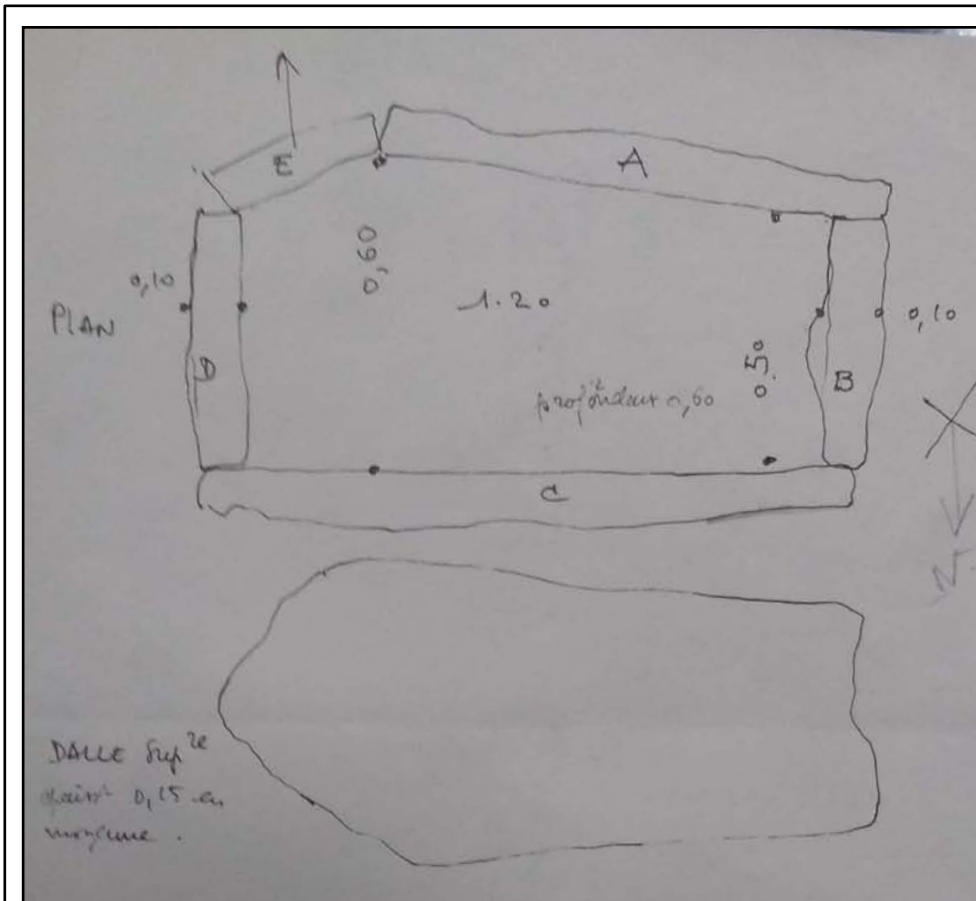 E
A
0,60
0,10
1.20
0,10
PLAN
0.50
D
B
profondeur 0,60
C
N.
DALLE Supre
épaisr 0,15 en
moyenne.